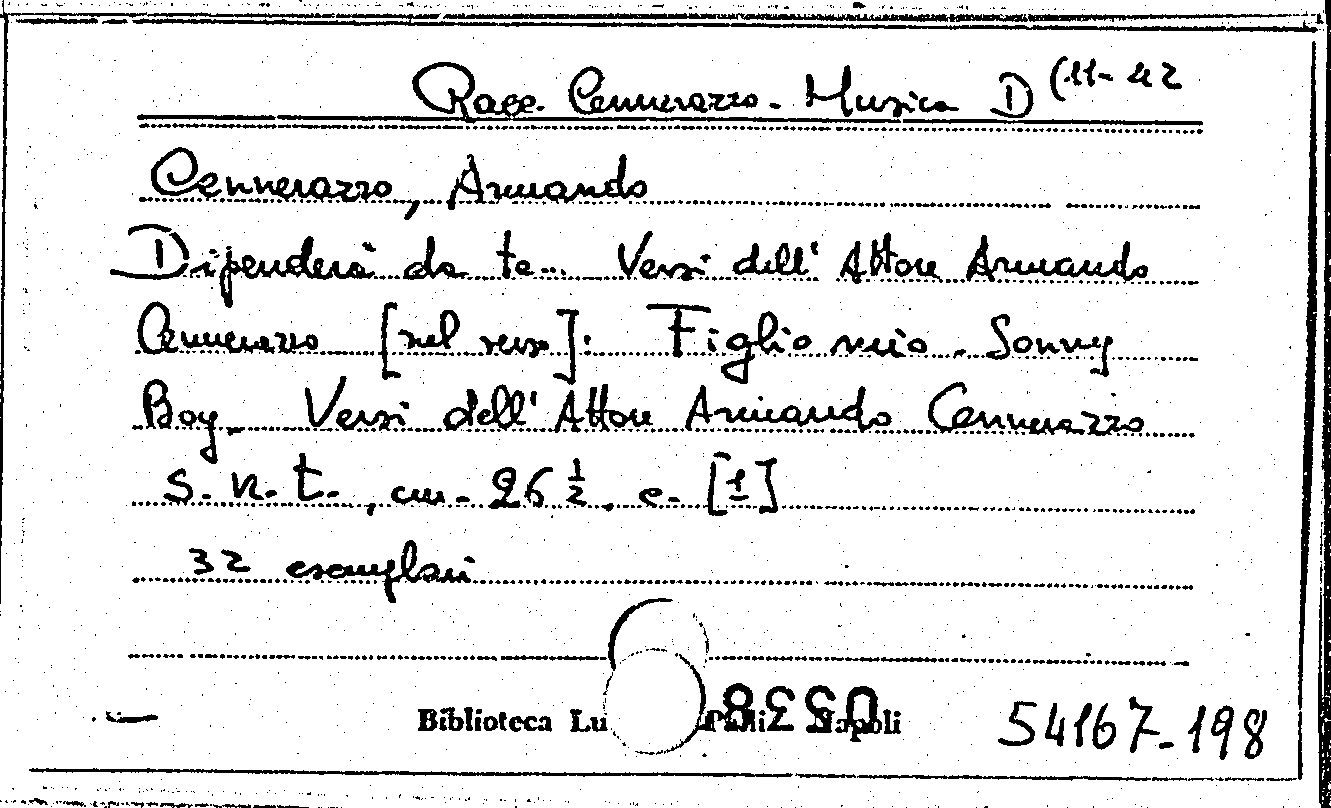 Racc. Cennerazzo - Musica D (11-42
Cennerazzo, Armando
Dipenderà da te... Versi dell' Attore Armando
Cennerazzo [nel verso]: Figlio mio - Sonny
Boy - Versi dell' Attore Armando Cennerazzo
S. n. t., cm. 26 ½, c. [1]
32 esemplari
Biblioteca Lu Napoli
54167-198